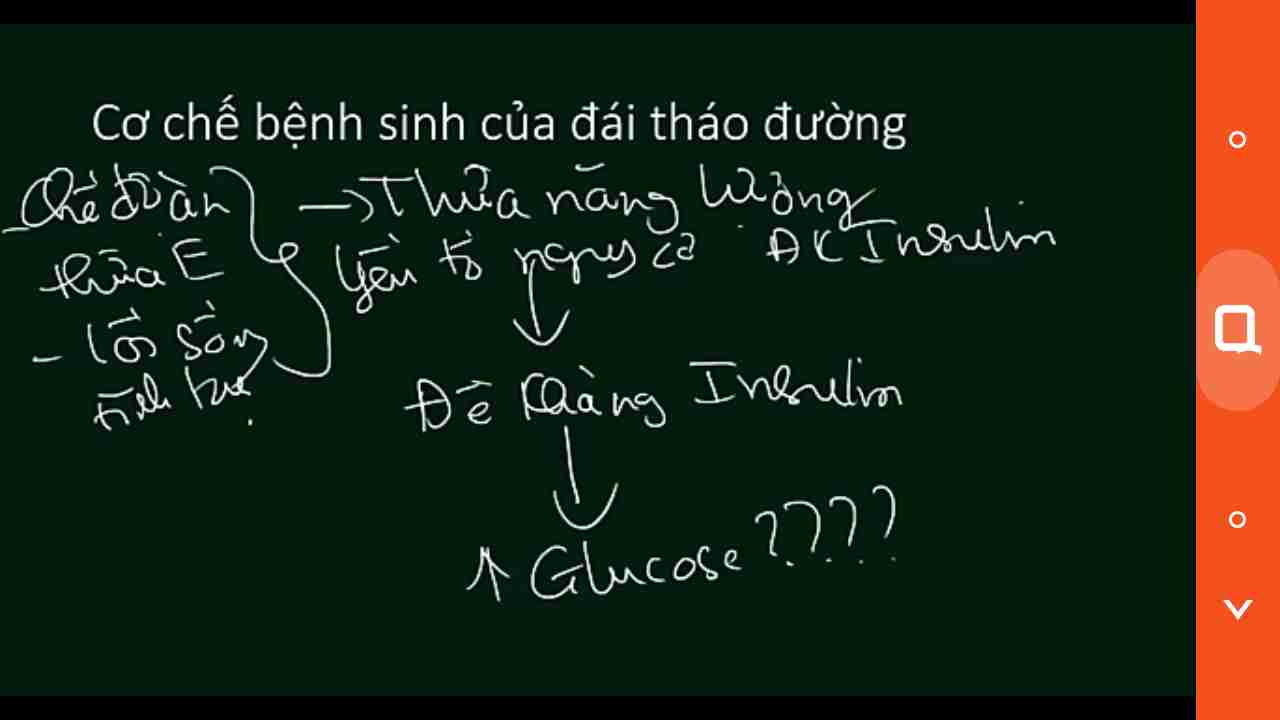 Cơ chế bệnh sinh của đái tháo đường
- Chế độ ăn
thừa E
- lối sống
tĩnh tại
→ Thừa năng lượng
yếu tố nguy cơ ĐK Insulin
Đề kháng Insulin
↑ Glucose ????